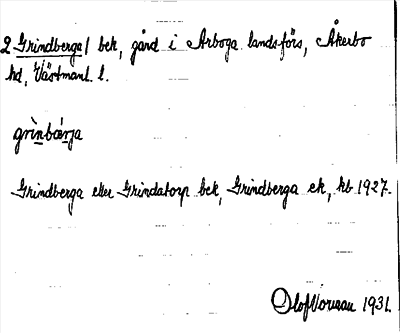 2 Grindberga/ bek, gård i Arboga landsförs, Åkerbo
hd, Västmanl. l.
grìnbær̀ja
Grindberga eller Grindatorp bek, Grindberga ek, kb 1927.
Olof 1931.